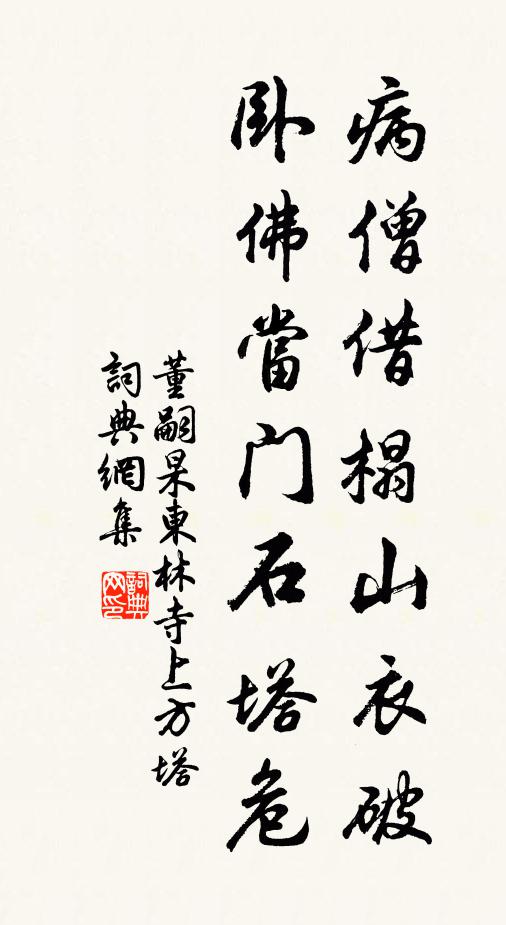 病僧借榻山衣破
臥佛當门石塔危
董嗣杲東林寺上方塔
詞典網集
詞典网印